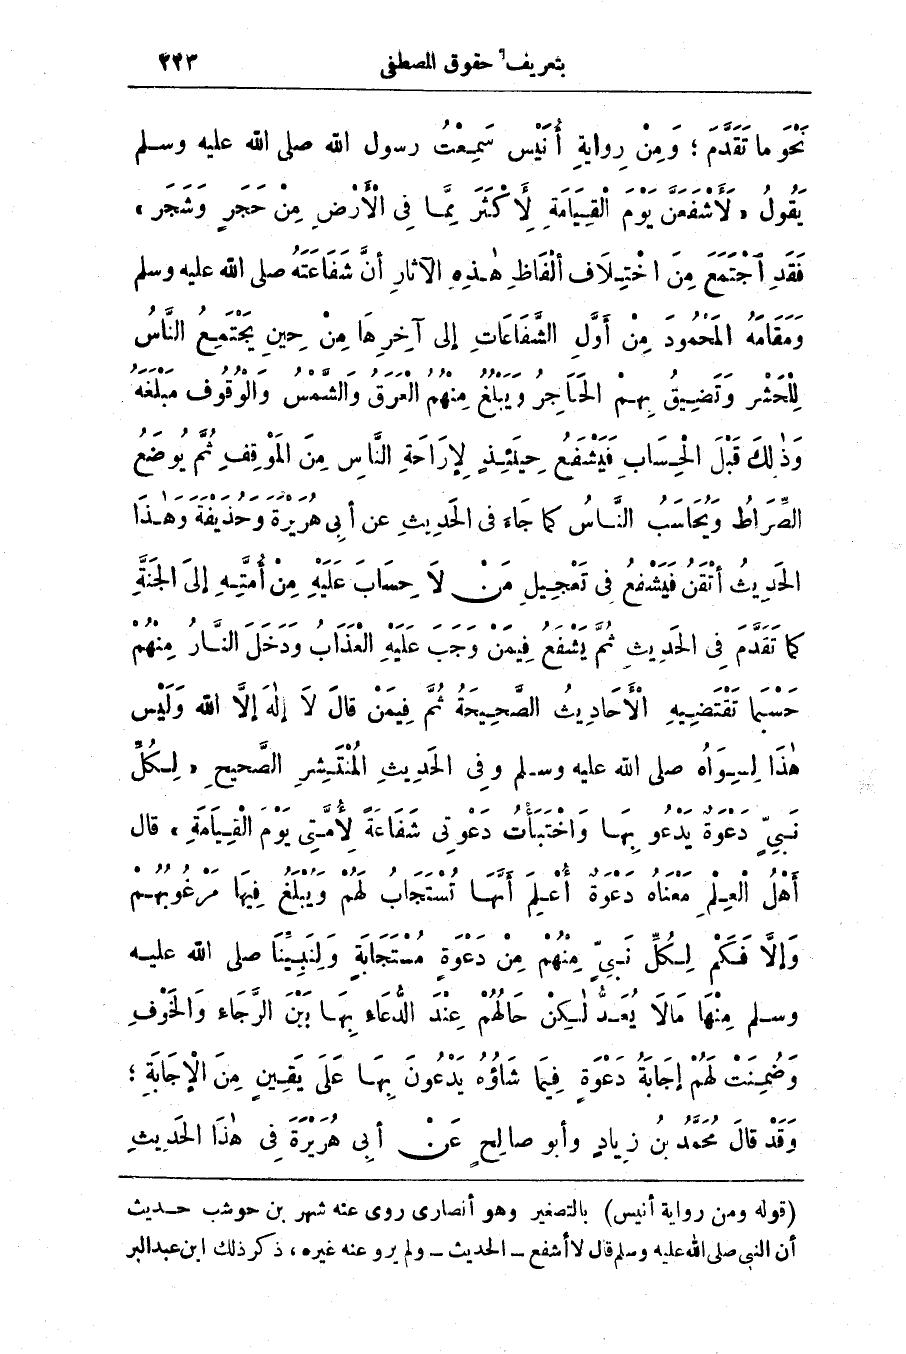 بتعريف حقوق المصطفى ٢٢٣
نَحْوَ ما تَقَدَّمَ ؛ وَمِنْ رِوايةِ أُنَيْسٍ سَمِعْتُ رسول الله صلى الله عليه وسلم
يَقُولُ « لَأَشْفَعَنَّ يَوْمَ الْقِيَامَةِ لِأَكْثَرَ مِمَّا فِى الْأَرْضِ مِنْ حَجَرٍ وَشَجَرٍ »
فَقَدِ اجْتَمَعَ مِنَ اخْتِلَافِ أَلْفَاظِ هٰذِهِ الآثارِ أنَّ شَفَاعَتَهُ صلى الله عليه وسلم
وَمَقَامَهُ المَحْمُودَ مِنْ أَوَّلِ الشَّفَاعَاتِ إلى آخِرِهَا مِنْ حِينِ يَجْتَمِعُ النَّاسُ
لِلْحَشْرِ وَتَضِيقُ بِهِمْ الحَنَاجِرُ وَيَبْلُغُ مِنْهُمُ العَرَقُ وَالشَّمْسُ وَالْوُقُوفُ مَبْلَغَهُ
وَذٰلِكَ قَبْلَ الْحِسَابِ فَيَشْفَعُ حِينَئِذٍ لِإِرَاحَةِ النَّاسِ مِنَ المَوْقِفِ ثُمَّ يُوضَعُ
الصِّرَاطُ وَيُحَاسَبُ النَّاسُ كما جَاءَ فى الحَدِيثِ عن أبى هُرَيْرَةَ وَحُذَيْفَةَ وَهٰذَا
الحَدِيثُ أَتْقَنُ فَيَشْفَعُ فِى تَعْجِيلِ مَنْ لَا حِسَابَ عَلَيْهِ مِنْ أُمَّتِهِ إلَى الجَنَّةِ
كما تَقَدَّمَ فِى الحَدِيثِ ثُمَّ يَشْفَعُ فِيمَنْ وَجَبَ عَلَيْهِ الْعَذَابُ وَدَخَلَ النَّارَ مِنْهُمْ
حَسْبَمَا تَقْتَضِيهِ الْأَحَادِيثُ الصَّحِيحَةُ ثُمَّ فِيمَنْ قالَ لَا إلٰهَ إلَّا الله وَلَيْسَ
هٰذَا لِسِوَاهُ صلى الله عليه وسلم وفِى الحَدِيثِ المُنْتَشِرِ الصَّحِيحِ « لِكُلِّ
نَبِيٍّ دَعْوَةٌ يَدْعُو بِهَا وَاخْتَبَأْتُ دَعْوَتِى شَفَاعَةً لِأُمَّتِى يَوْمَ الْقِيَامَةِ » قال
أَهْلُ الْعِلْمِ مَعْنَاهُ دَعْوَةٌ أُعْلِمَ أَنَّهَا تُسْتَجَابُ لَهُمْ وَيُبْلَغُ فِيهَا مَرْغُوبُهُمْ
وَإلَّا فَكَمْ لِكُلِّ نَبِيٍّ مِنْهُمْ مِنْ دَعْوَةٍ مُسْتَجَابَةٍ وَلِنَبِيِّنَا صلى الله عليه
وسلم مِنْهَا مَالَا يُعَدُّ لٰكِنْ حَالُهُمْ عِنْدَ الدُّعَاءِ بِهَا بَيْنَ الرَّجَاءِ وَالخَوْفِ
وَضُمِنَتْ لَهُمْ إجَابَةُ دَعْوَةٍ فِيمَا شَاؤُه يَدْعُونَ بِهَا عَلَى يَقِينٍ مِنَ الْإجَابَةِ ؛
وَقَدْ قالَ مُحَمَّدُ بنُ زِيادٍ وأبو صالِحٍ عَنْ أبى هُرَيْرَةَ فِى هٰذَا الحَدِيثِ
(قوله ومن رواية أنيس) بالتصغير وهو أنصارى روى عنه شهر بن حوشب حديث
أن النبى صلى الله عليه وسلم قال لأشفع – الحديث – ولم يرو عنه غيره ، ذكر ذلك ابن عبدالبر